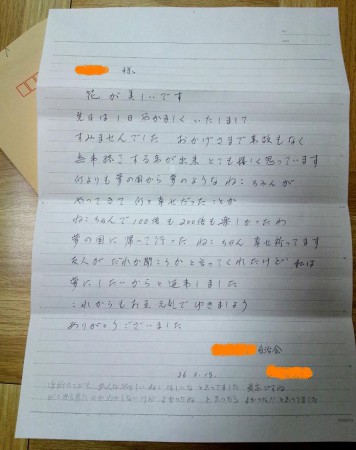 様
花が美しいです
先日は1日おかましく いたしまして
すみませんでした おかげさまで事故もなく
無事終了する事が出来 とても嬉しく思っています
何よりも夢の国から 夢のような ねこちゃんが
やってきて 何と幸せだったことか
ねこちゃんで100倍も200倍も楽しかったわ
夢の国に 帰って行った ねこちゃん 幸せ祈ってます
友人が だれか聞こうかと言ってくれたけど 私は
夢にしたいからと 返事しました
これからもお互元気で 歩きましょう
ありがとうございました
自治会